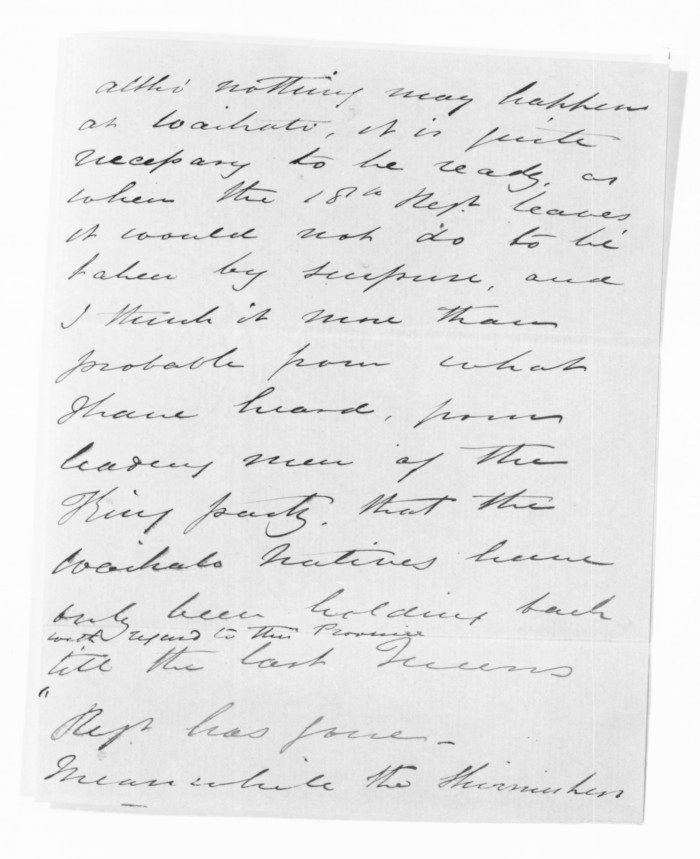 altho' nothing may happen
at Waikato, it is quite
necessary to be ready, as
when the 18th Regt leaves
it would not do to be
taken by surprise, and
I think it more than
probable from what
I have heard, from
leading men of the
King party, that the
Waikato Natives have
only been holding back
with regard to this Province
till the last Queens
"
Regt has gone -
Meanwhile the Skirmishers